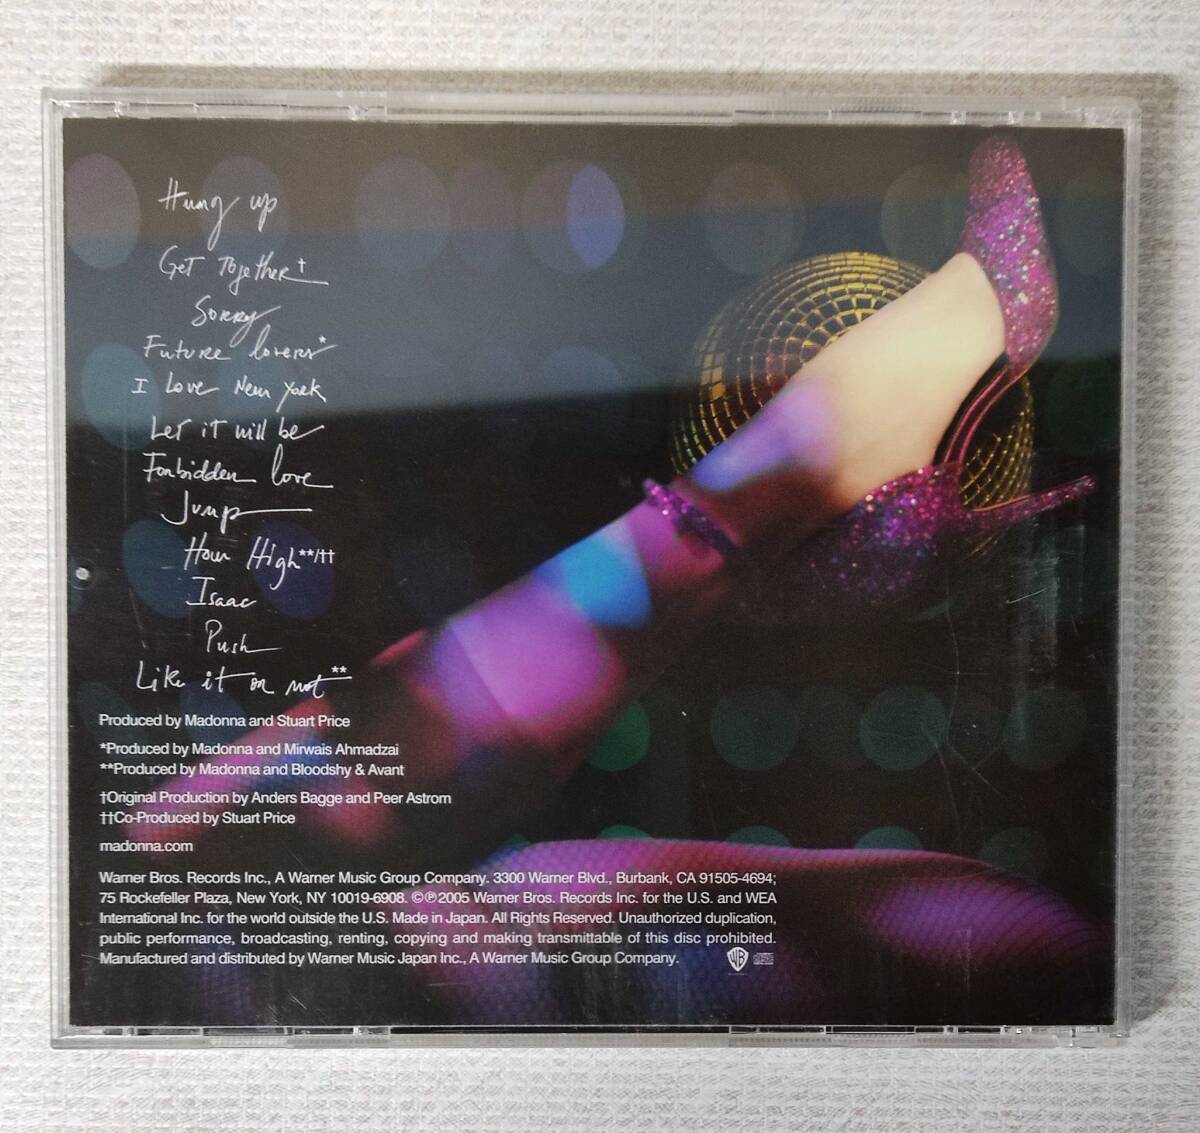 Hung up
Get Together†
Sorry
Future lovers*
I Love New York
Let it will be
Forbidden love
Jump
How High**/††
Isaac
Push
Like it or not**
Produced by Madonna and Stuart Price
*Produced by Madonna and Mirwais Ahmadzai
**Produced by Madonna and Bloodshy & Avant
†Original Production by Anders Bagge and Peer Astrom
††Co-Produced by Stuart Price
madonna.com
Warner Bros. Records Inc., A Warner Music Group Company. 3300 Warner Blvd., Burbank, CA 91505-4694;
75 Rockefeller Plaza, New York, NY 10019-6908. ©℗2005 Warner Bros. Records Inc. for the U.S. and WEA
International Inc. for the world outside the U.S. Made in Japan. All Rights Reserved. Unauthorized duplication,
public performance, broadcasting, renting, copying and making transmittable of this disc prohibited.
Manufactured and distributed by Warner Music Japan Inc., A Warner Music Group Company.
WB